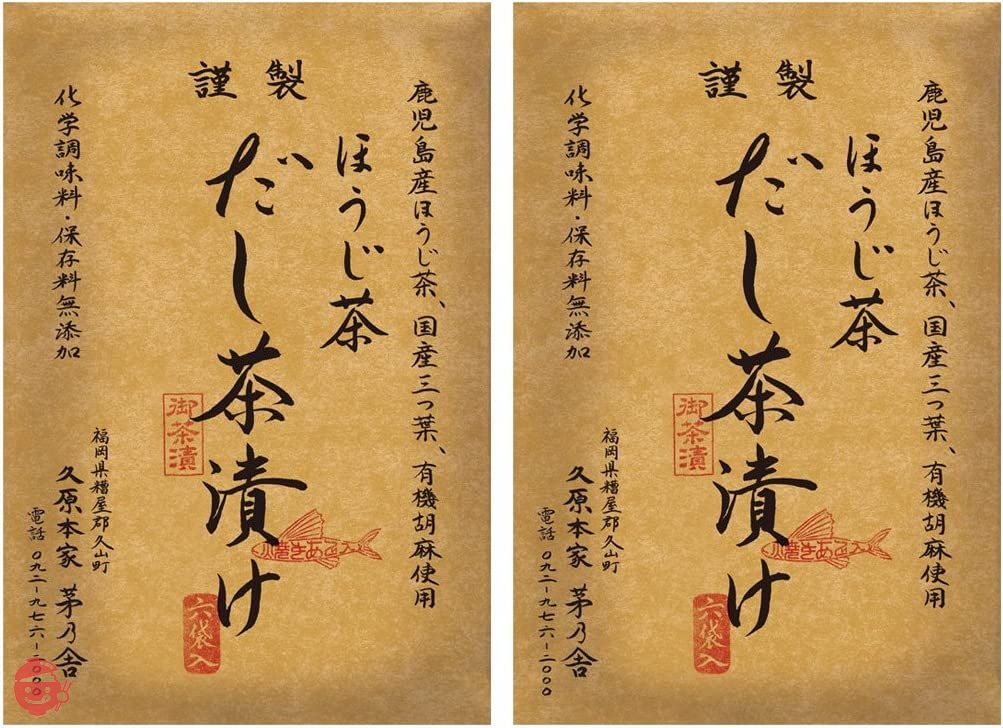 鹿児島産ほうじ茶、国産三つ葉、有機胡麻使用
ほうじ茶
謹製
だし茶漬け
御茶漬
焼きあご入
六袋入
化学調味料・保存料無添加
福岡県糟屋郡久山町
久原本家 茅乃舎
電話 〇九二-九七六-二〇〇〇
鹿児島産ほうじ茶、国産三つ葉、有機胡麻使用
ほうじ茶
謹製
だし茶漬け
御茶漬
焼きあご入
六袋入
化学調味料・保存料無添加
福岡県糟屋郡久山町
久原本家 茅乃舎
電話 〇九二-九七六-二〇〇〇